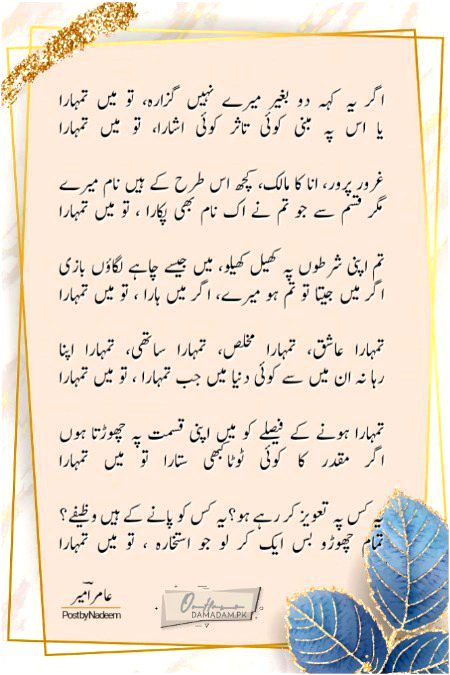 اگر یہ کہہ دو بغیر میرے نہیں گزارہ، تو میں تمہارا
یا اس پہ مبنی کوئی تاثر کوئی اشارا، تو میں تمہارا
غرور پرور، انا کا مالک، کچھ اس طرح کے ہیں نام میرے
مگر قسم سے جو تم نے اک نام بھی پکارا ، تو میں تمہارا
تم اپنی شرطوں پہ کھیل کھیلو، میں جیسے چاہے لگاؤں بازی
اگر میں جیتا تو تم ہو میرے، اگر میں ہارا ، تو میں تمہارا
تمہارا عاشق، تمہارا مخلص، تمہارا ساتھی، تمہارا اپنا
رہا نہ ان میں سے کوئی دنیا میں جب تمہارا ، تو میں تمہارا
تمہارا ہونے کے فیصلے کو میں اپنی قسمت پہ چھوڑتا ہوں
اگر مقدر کا کوئی ٹوٹا کبھی ستارا تو میں تمہارا
یہ کس پہ تعویز کر رہے ہو؟ یہ کس کو پانے کے ہیں وظیفے؟
تمام چھوڑو بس ایک کر لو جو استخارہ ، تو میں تمہارا
عامر امیر
PostbyNadeem
DAMADAM.PK